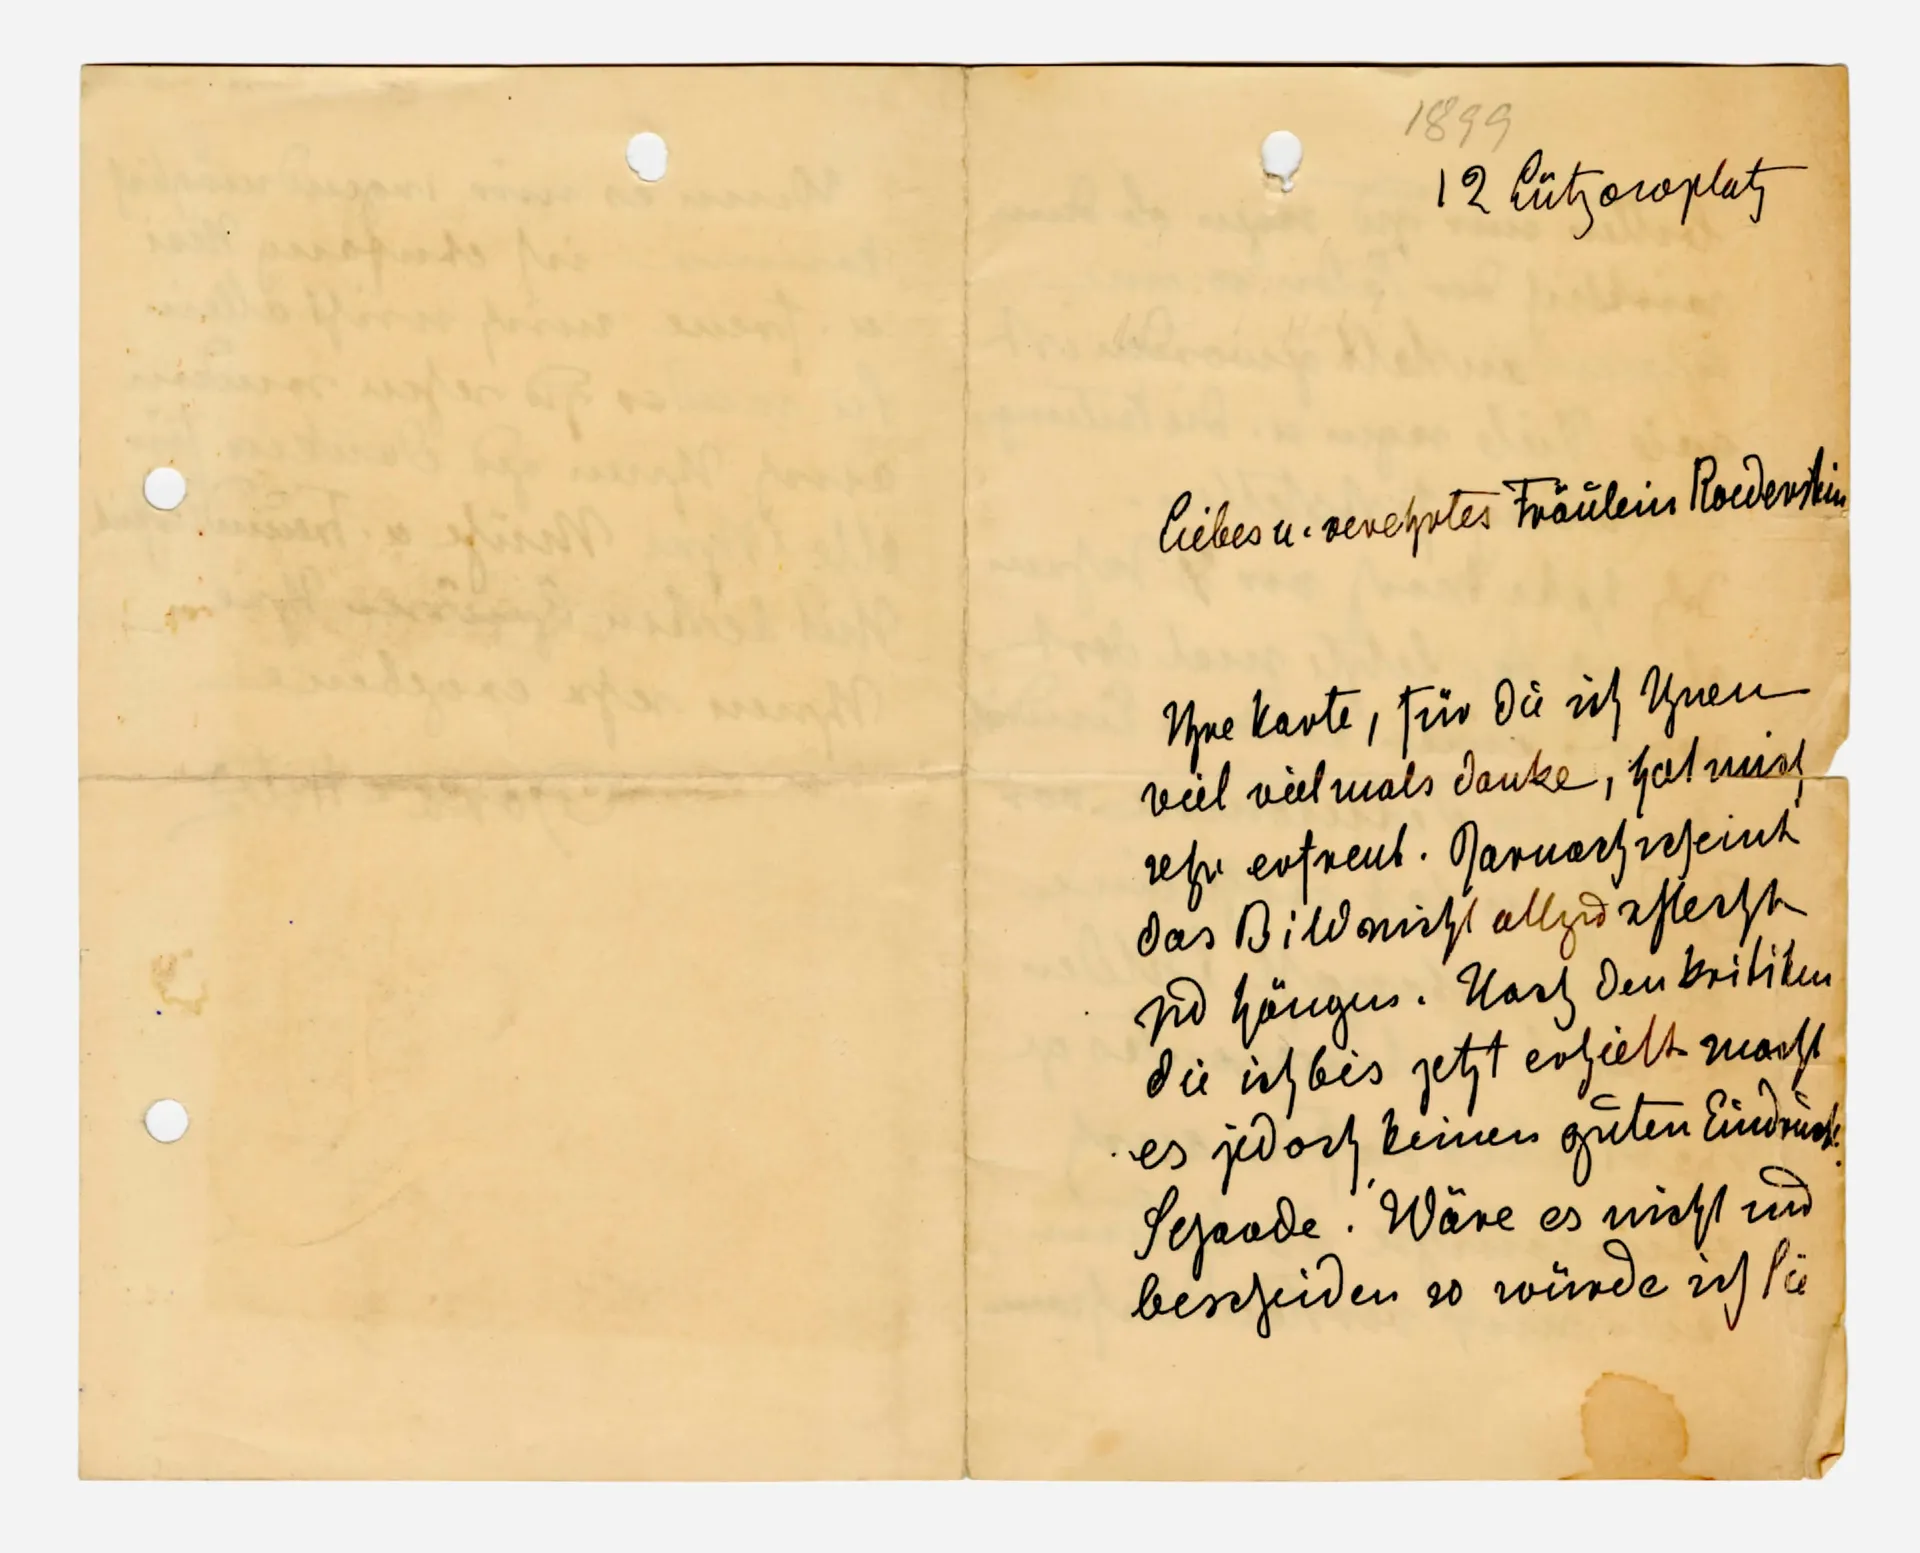 1899
12 Lützowplatz
Liebes u. verehrtes Fräulein Roederstein
Ihre Karte, für die ich Ihnen
viel vielmals danke, hat mich
sehr erfreut. Darnach scheint
das Bild nicht allzu schlecht
zu hängen. Nach den Kritiken
die ich bis jetzt erhielt macht
es jedoch keinen guten Eindruck.
Schaade. Wäre es nicht un
bescheiden so würde ich Sie